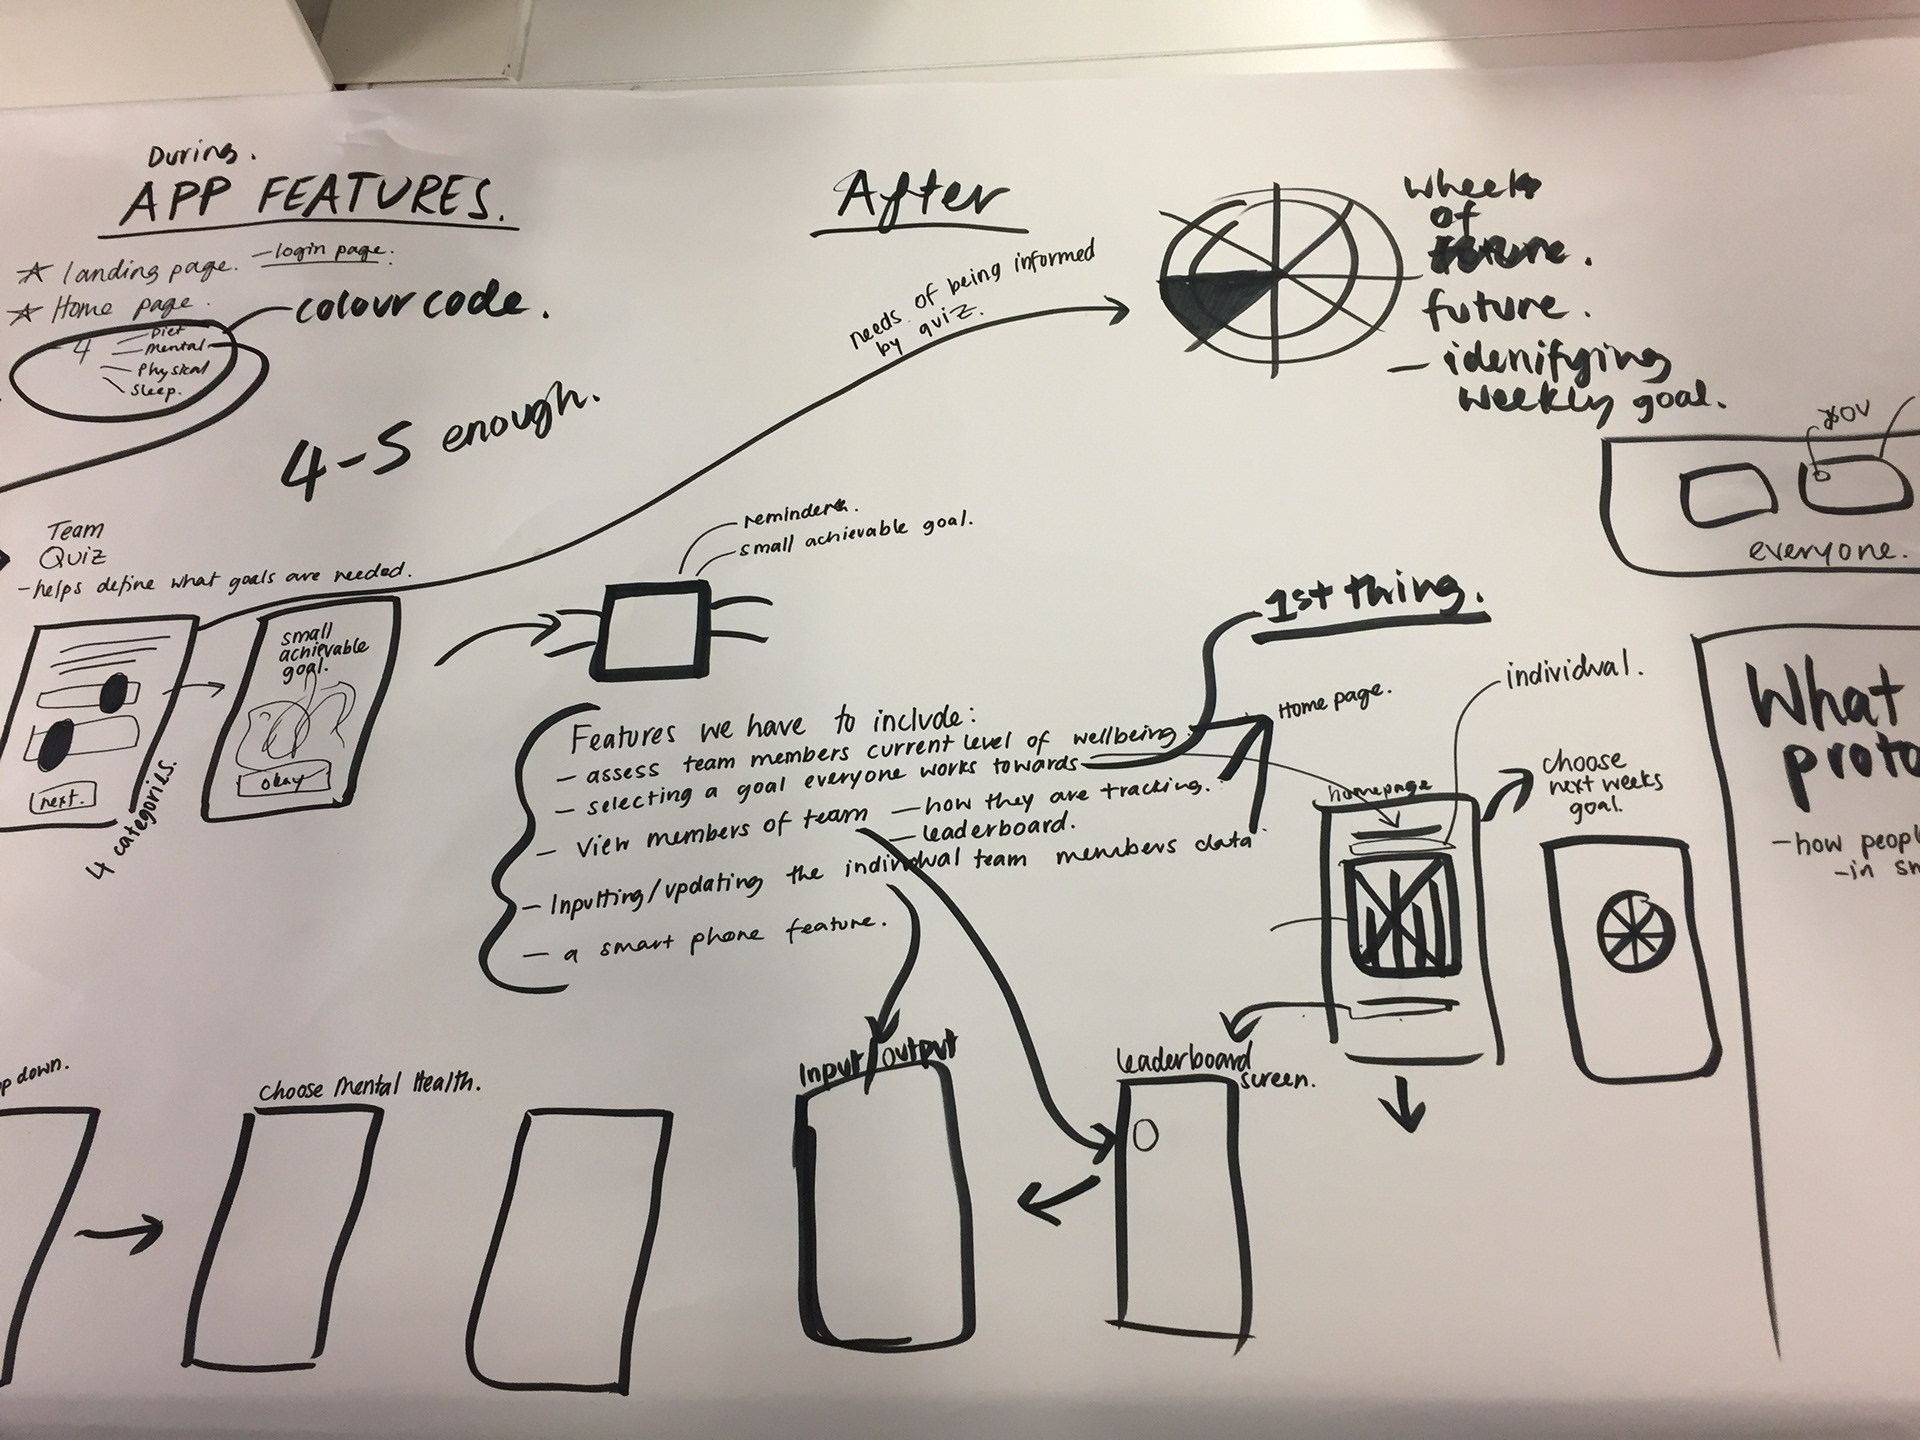 During.
APP FEATURES.
☆ landing page. – login page.
☆ Home page.
colour code.
4
– Diet
– Mental
– Physical
– Sleep.
4-5 enough.
Team
Quiz
- helps define what goals are needed.
next.
4 categories.
small
achievable
goal.
okay
After
needs of being informed
by quiz.
wheel
of
future.
future.
– idenifying
weekly goal.
reminders.
small achievable goal.
everyone.
1st thing.
Features we have to include:
– assess team members current level of wellbeing
– selecting a goal everyone works towards
– View members of team – how they are tracking.
– leaderboard.
– Inputting/updating the individual team members data
– a smart phone feature.
Home page.
individual.
homepage
choose
next weeks
goal.
What
proto
– how peopl
– in sm
op down.
Choose Mental Health.
Input/output
leaderboard
screen.